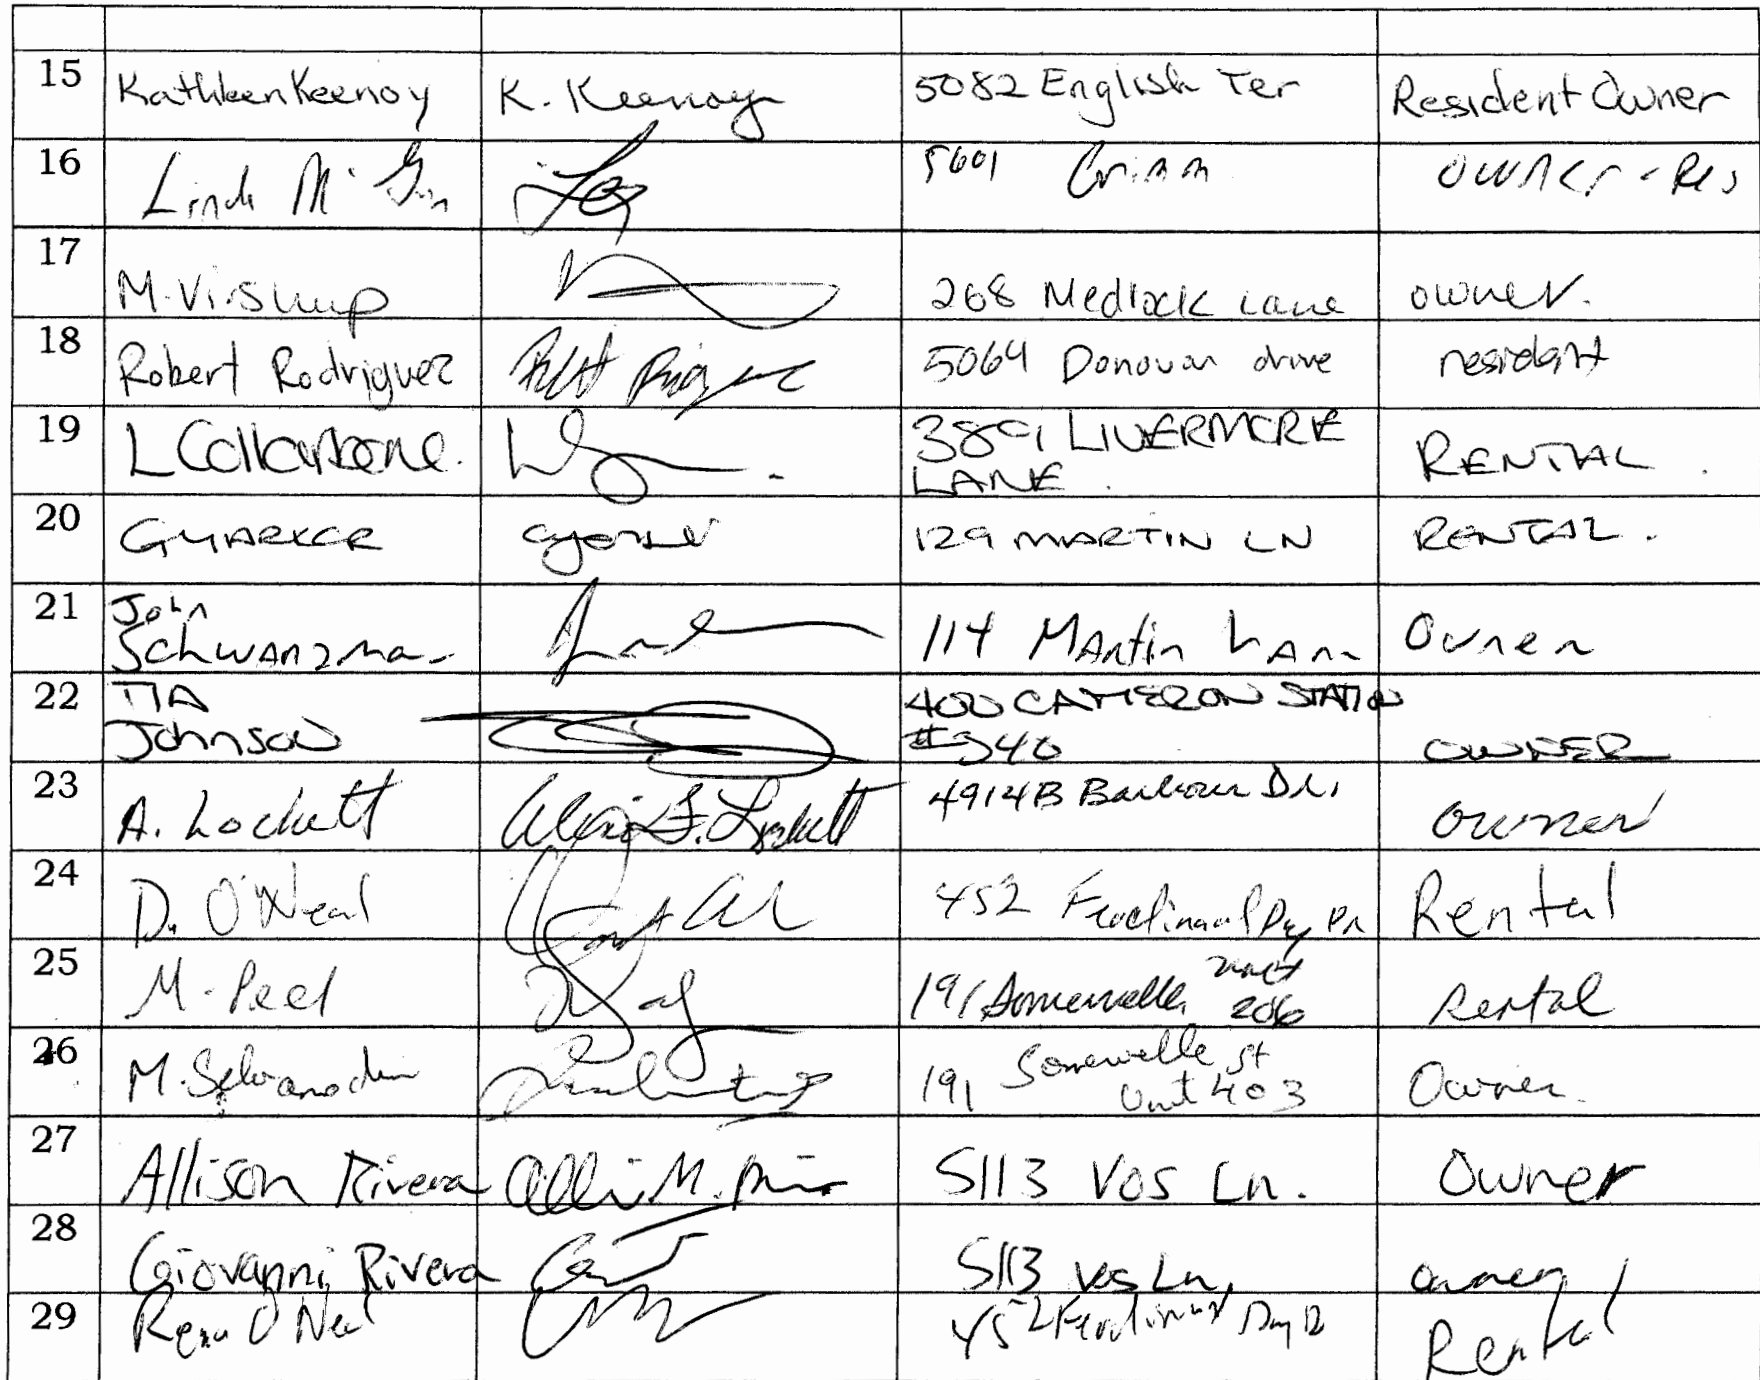 15 Kathleen Keenoy K. Keenoy 5082 English Ter Resident Owner
16 5601 owner - Res
17 M. Virshup 268 Medlock Lane owner.
18 Robert Rodriguez 5064 Donovan drive resident
19 L Collarbone. 3891 LIVERMORE LANE. RENTAL.
20 129 MARTIN LN RENTAL.
21 John Schwanzma 114 Martin Owner
22 TIA Johnson 400 CAMERON STATION #340 OWNER
23 A. Lockett 4914B Barbour Dr. owner
24 D. O'Neal 452 Ferdinand Day Dr Rental
25 M. Peel 191 Somervelle unit 206 Rental
26 191 Somervelle st Unit 403 Owner
27 Allison Rivera 5113 Vos Ln. Owner
28 Giovanni Rivera 5113 Vos Ln, owner
29 452 Ferdinand Day Dr Rental